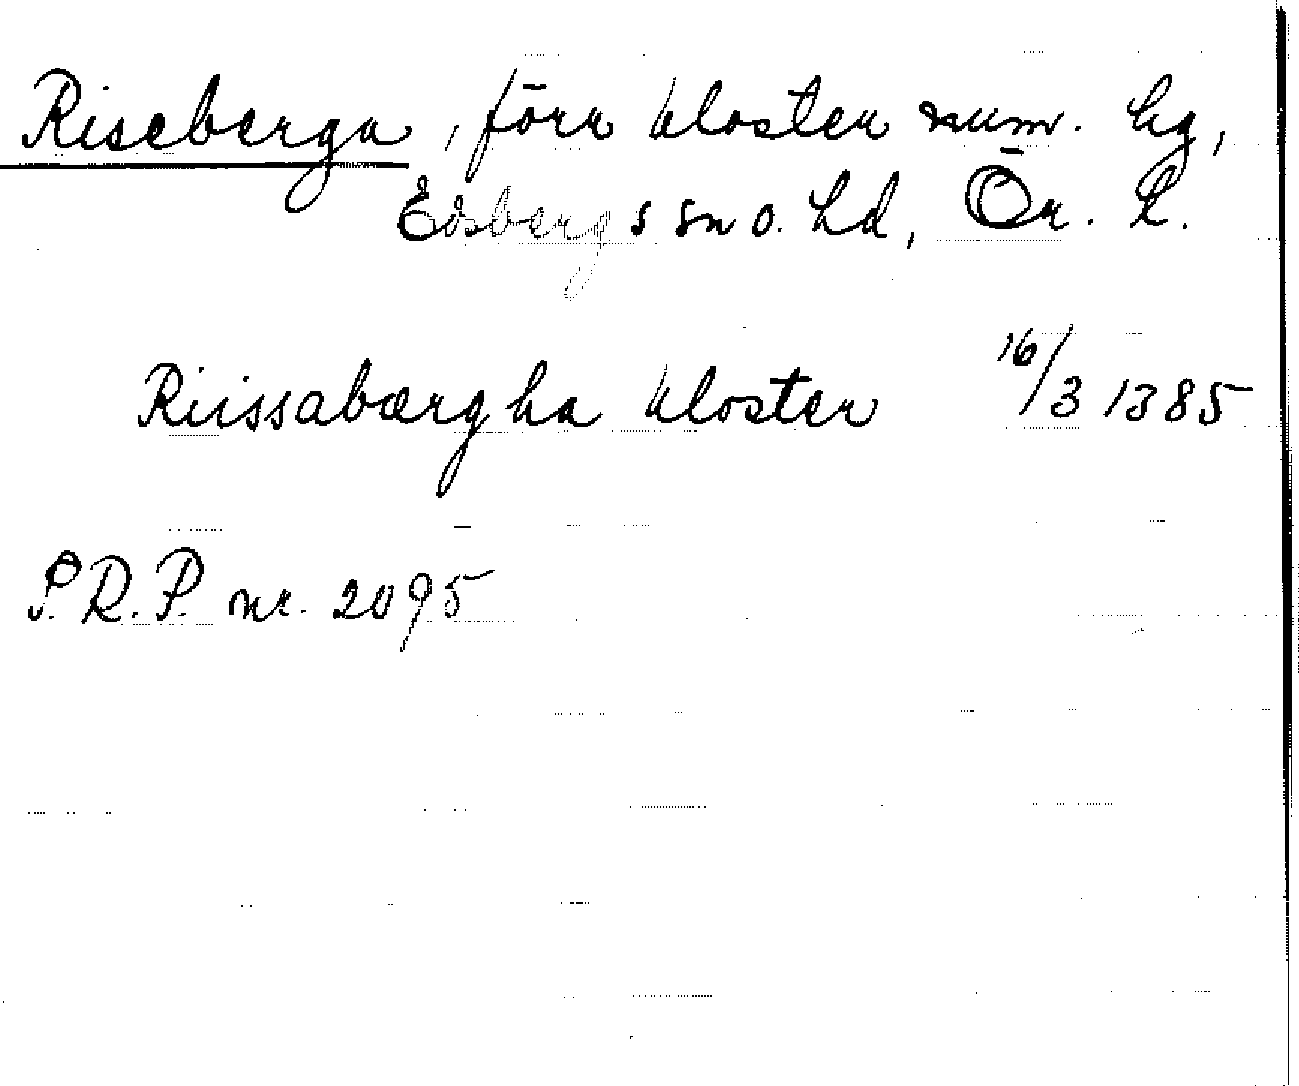 Riseberga, förr kloster num. hg,
Edsbergs sn o. hd, Ör. l.
Riissabærgha kloster 16/3 1385
P.R.P. nr. 2095